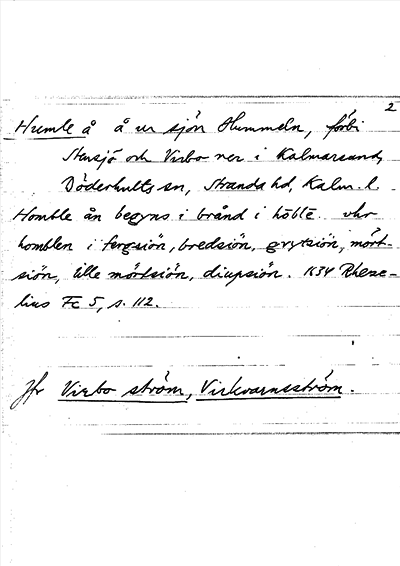 2
Humle å å ur sjön Hummeln, förbi
Stensjö och Virbo ner i Kalmarsund,
Döderhults sn, Stranda hd, Kalm. l.
Homble ån begyns i brånd i höble. vhr
homblen i fergsiön, bredsiön, grytsiön, mört-
siön, lille mörtsiön, diupsiön. 1634 Rheze-
lius Fc 5, s. 112.
Jfr Virbo ström, Virkvarnsström.